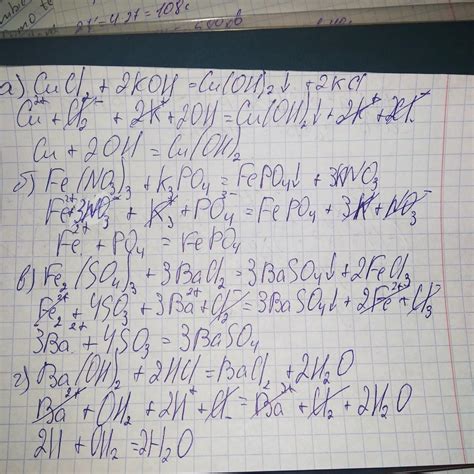 2т = 4.2т = 108г
а) CuCl₂ + 2KOH = Cu(OH)₂↓ + 2KCl
Cu²⁺ + Cl₂⁻ + 2K⁺ + 2OH = Cu(OH)₂↓ + 2K⁺ + 2Cl⁻
Cu + 2OH = Cu(OH)₂
б) Fe(NO₃)₃ + K₃PO₄ = FePO₄↓ + 3KNO₃
Fe³⁺ 3NO₃⁻ + K₃⁺ + PO₄³⁻ = FePO₄ + 3K⁺ + NO₃⁻
Fe³⁺ + PO₄ = FePO₄
в) Fe₂(SO₄)₃ + 3BaCl₂ = 3BaSO₄↓ + 2FeCl₃
Fe₂²⁺ + 4SO₃ + 3Ba²⁺ + Cl₂⁻ = 3BaSO₄↓ + 2Fe²⁺ + Cl₃⁻
3Ba²⁺ + 4SO₃ = 3BaSO₄
г) Ba(OH)₂ + 2HCl = BaCl₂ + 2H₂O
Ba²⁺ + OH₂ + 2H⁺ + Cl⁻ = Ba²⁺ + Cl₂⁻ + 2H₂O
2H + OH₂ = 2H₂O